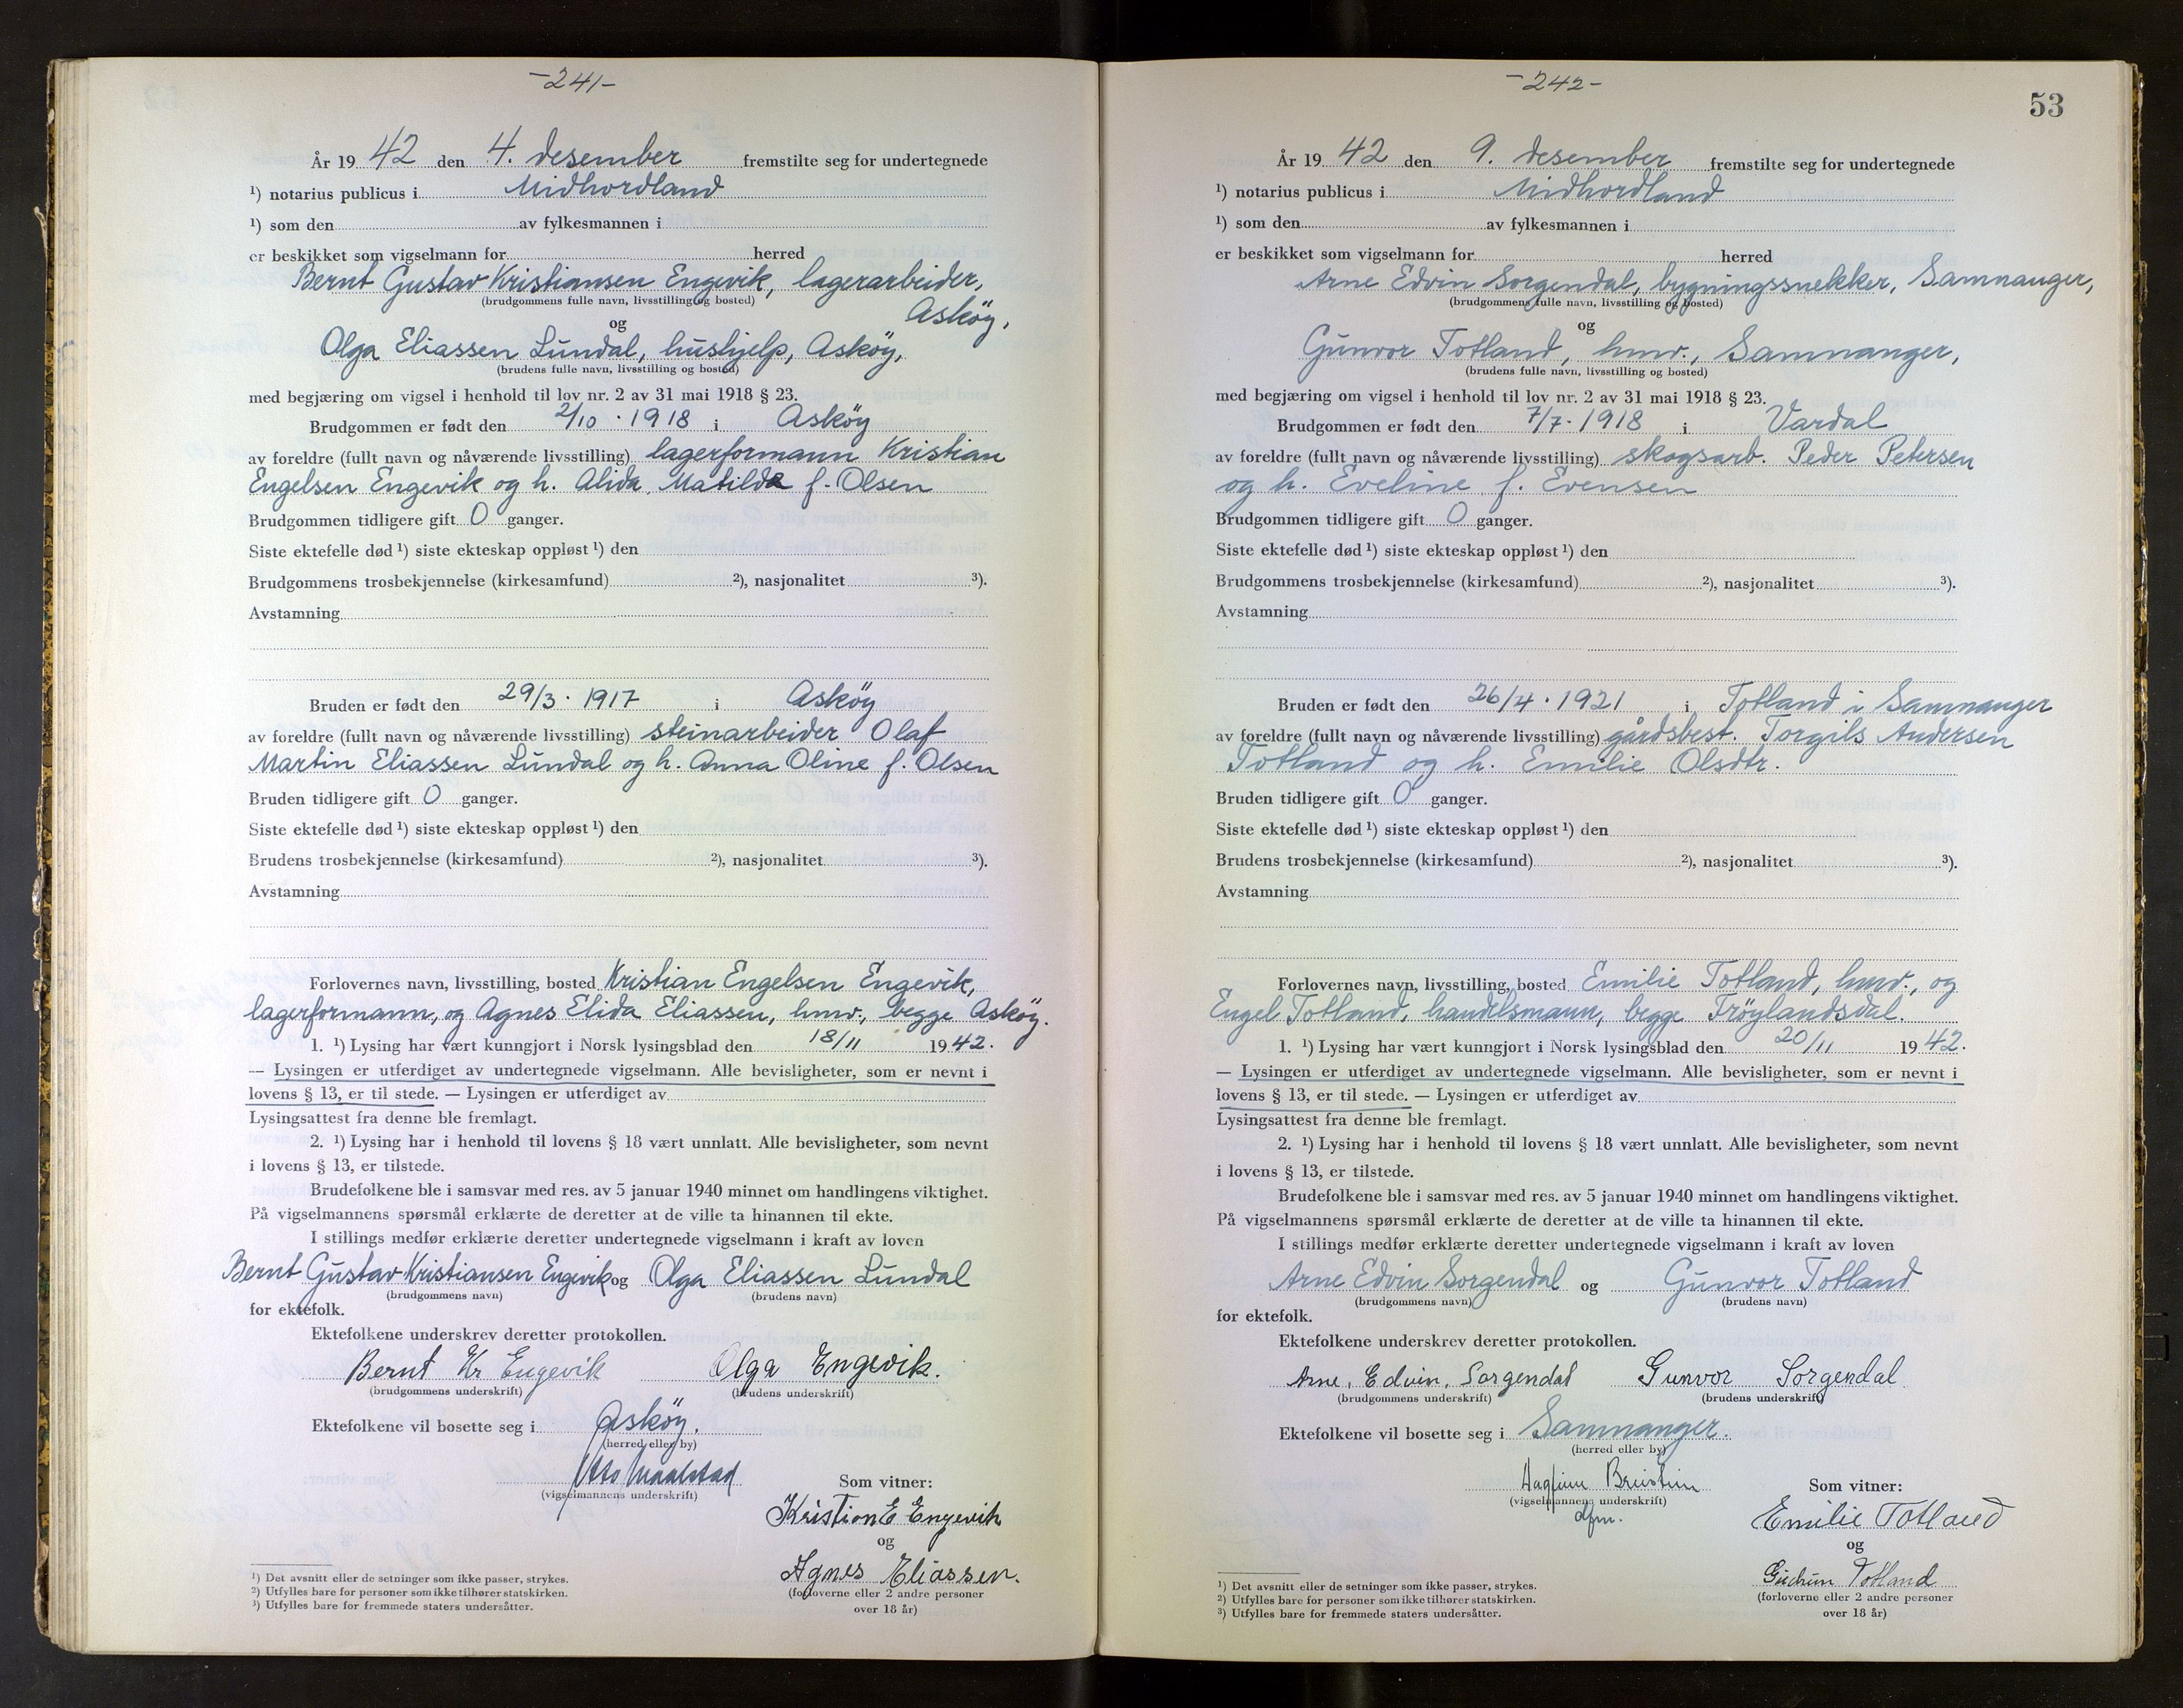 -241-
År 19 42 den 4. desember fremstilte seg for undertegnede
¹) notarius publicus i Midhordland
¹) som den av fylkesmannen i
er beskikket som vigselmann for herred
Bernt Gustav Kristiansen Engevik, lagerarbeider,
(brudgommens fulle navn, livsstilling og bosted)
Asköy,
og
Olga Eliassen Lundal, hushjelp, Asköy,
(brudens fulle navn, livsstilling og bosted)
med begjæring om vigsel i henhold til lov nr. 2 av 31 mai 1918 § 23.
Brudgommen er født den 2/10 . 1918 i Asköy
av foreldre (fullt navn og nåværende livsstilling) lagerformann Kristian
Engelsen Engevik og h. Alida Matilde f. Olsen
Brudgommen tidligere gift 0 ganger.
Siste ektefelle død ¹) siste ekteskap oppløst ¹) den
Brudgommens trosbekjennelse (kirkesamfund) ²), nasjonalitet ³).
Avstamning
Bruden er født den 29/3 . 1917 i Asköy
av foreldre (fullt navn og nåværende livsstilling) steinarbeider Olaf
Martin Eliassen Lundal og h. Anna Oline f. Olsen
Bruden tidligere gift 0 ganger.
Siste ektefelle død ¹) siste ekteskap oppløst ¹) den
Brudens trosbekjennelse (kirkesamfund) ²), nasjonalitet ³).
Avstamning
Forlovernes navn, livsstilling, bosted Kristian Engelsen Engevik,
lagerformann, og Agnes Elida Eliassen, hmv., begge Asköy.
1. ¹) Lysing har vært kunngjort i Norsk lysingsblad den 18/11 19 42.
— Lysingen er utferdiget av undertegnede vigselmann. Alle bevisligheter, som er nevnt i
lovens § 13, er til stede. — Lysingen er utferdiget av
Lysingsattest fra denne ble fremlagt.
2. ¹) Lysing har i henhold til lovens § 18 vært unnlatt. Alle bevisligheter, som nevnt
i lovens § 13, er tilstede.
Brudefolkene ble i samsvar med res. av 5 januar 1940 minnet om handlingens viktighet.
På vigselmannens spørsmål erklærte de deretter at de ville ta hinannen til ekte.
I stillings medfør erklærte deretter undertegnede vigselmann i kraft av loven
Bernt Gustav Kristiansen Engevik og Olga Eliassen Lundal
(brudgommens navn) (brudens navn)
for ektefolk.
Ektefolkene underskrev deretter protokollen.
Bernt Kr Engevik Olga Engevik.
(brudgommens underskrift) (brudens underskrift)
Ektefolkene vil bosette seg i Asköy.
(herred eller by)
Otto
(vigselmannens underskrift)
Som vitner:
Kristian E Engevik
og
Agnes Eliassen.
(forloverne eller 2 andre personer
over 18 år)
¹) Det avsnitt eller de setninger som ikke passer, strykes.
²) Utfylles bare for personer som ikke tilhører statskirken.
³) Utfylles bare for fremmede staters undersåtter.
-242-
53
År 19 42 den 9. desember fremstilte seg for undertegnede
¹) notarius publicus i Midhordland
¹) som den av fylkesmannen i
er beskikket som vigselmann for herred
Arne Edvin Sorgendal, bygningssnekker, Samnanger,
(brudgommens fulle navn, livsstilling og bosted)
og
Gunvor Totland, hmv., Samnanger,
(brudens fulle navn, livsstilling og bosted)
med begjæring om vigsel i henhold til lov nr. 2 av 31 mai 1918 § 23.
Brudgommen er født den 7/7 . 1918 i Vardal
av foreldre (fullt navn og nåværende livsstilling) skogsarb. Peder Petersen
og h. Eveline f. Evensen
Brudgommen tidligere gift 0 ganger.
Siste ektefelle død ¹) siste ekteskap oppløst ¹) den
Brudgommens trosbekjennelse (kirkesamfund) ²), nasjonalitet ³).
Avstamning
Bruden er født den 26/4 . 1921 i Totland i Samnanger
av foreldre (fullt navn og nåværende livsstilling) gårdsbest. Torgils Andersen
Totland og h. Emilie Olsdtr.
Bruden tidligere gift 0 ganger.
Siste ektefelle død ¹) siste ekteskap oppløst ¹) den
Brudens trosbekjennelse (kirkesamfund) ²), nasjonalitet ³).
Avstamning
Forlovernes navn, livsstilling, bosted Emilie Totland, hmv., og
Engel Totland, handelsmann, begge Tröylandsdal.
1. ¹) Lysing har vært kunngjort i Norsk lysingsblad den 20/11 19 42.
— Lysingen er utferdiget av undertegnede vigselmann. Alle bevisligheter, som er nevnt i
lovens § 13, er til stede. — Lysingen er utferdiget av
Lysingsattest fra denne ble fremlagt.
2. ¹) Lysing har i henhold til lovens § 18 vært unnlatt. Alle bevisligheter, som nevnt
i lovens § 13, er tilstede.
Brudefolkene ble i samsvar med res. av 5 januar 1940 minnet om handlingens viktighet.
På vigselmannens spørsmål erklærte de deretter at de ville ta hinannen til ekte.
I stillings medfør erklærte deretter undertegnede vigselmann i kraft av loven
Arne Edvin Sorgendal og Gunvor Totland
(brudgommens navn) (brudens navn)
for ektefolk.
Ektefolkene underskrev deretter protokollen.
Arne, Edvin, Sorgendal Gunvor Sorgendal
(brudgommens underskrift) (brudens underskrift)
Ektefolkene vil bosette seg i Samnanger.
(herred eller by)
Hagfinn Breistein
(vigselmannens underskrift)
dfm.
Som vitner:
Emilie Totland
og
Gudrun Totland
(forloverne eller 2 andre personer
over 18 år)
¹) Det avsnitt eller de setninger som ikke passer, strykes.
²) Utfylles bare for personer som ikke tilhører statskirken.
³) Utfylles bare for fremmede staters undersåtter.